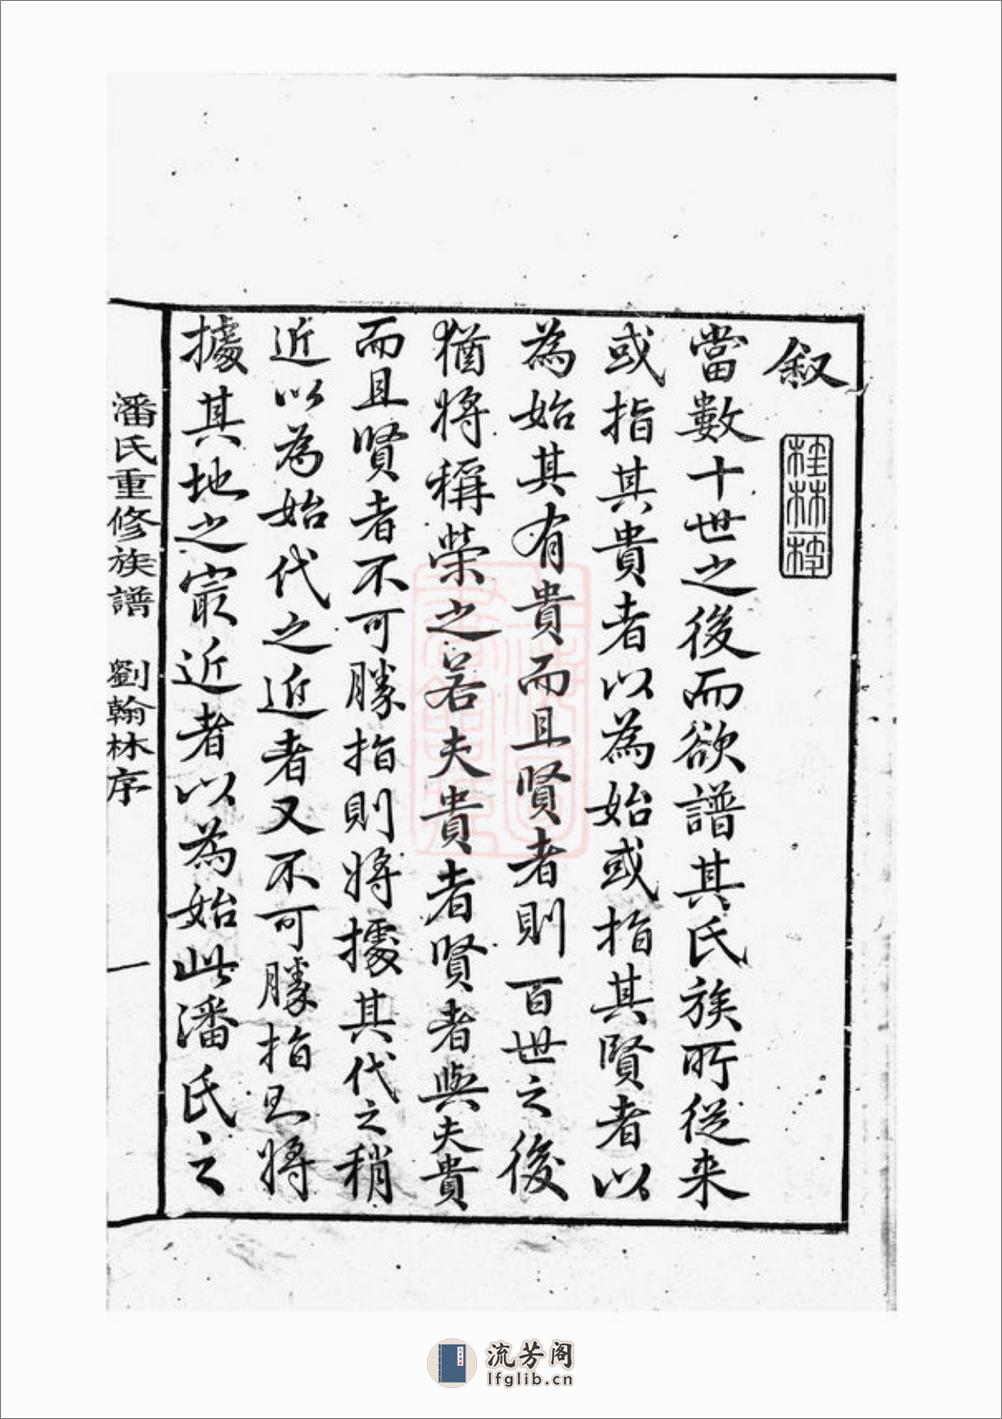 叙
桂林
當數十世之後而欲譜其氏族所從来
或指其貴者以為始或指其賢者以
為始其有貴而且賢者則百世之後
猶將稱榮之若夫貴者賢者與夫貴
而且賢者不可勝指則將據其代之稍
近以為始代之近者又不可勝指又將
據其地之寂近者以為始此潘氏之
潘氏重修族譜 劉翰林序 一
流芳阁
lfglib.cn